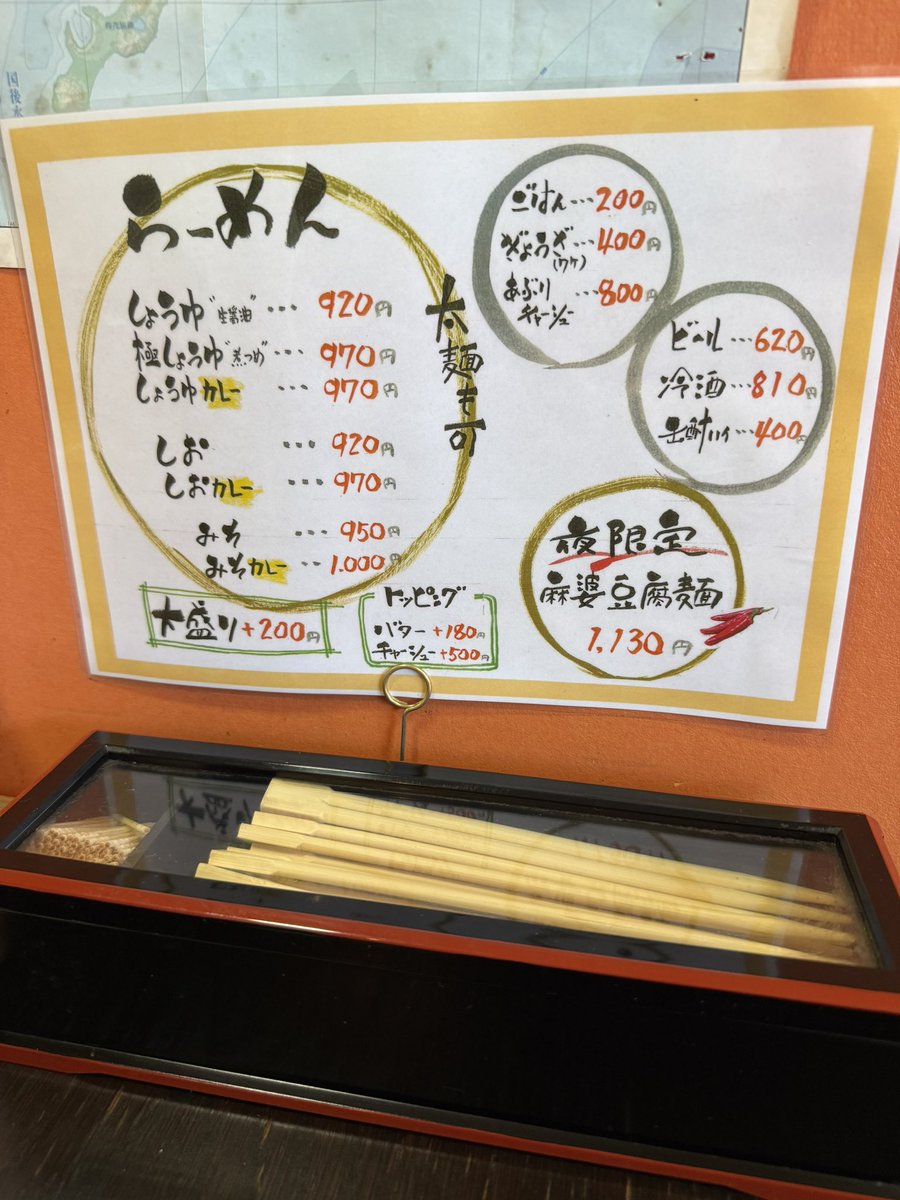 国後水
らーめん
しょうゆ"生醤油" … 920円
極しょうゆ"煮つめ" … 970円
しょうゆカレー … 970円
しお … 920円
しおカレー … 970円
みそ … 950円
みそカレー … 1.000円
太麺も可
大盛り+200円
トッピング
バター +180円
チャーシュー +500円
ごはん…200円
ぎょうざ…400円
(7ケ)
あぶり …800円
チャーシュー
ビール…620円
冷酒…810円
缶酎ハイ…400円
夜限定
麻婆豆腐麺
1,130円
大盛